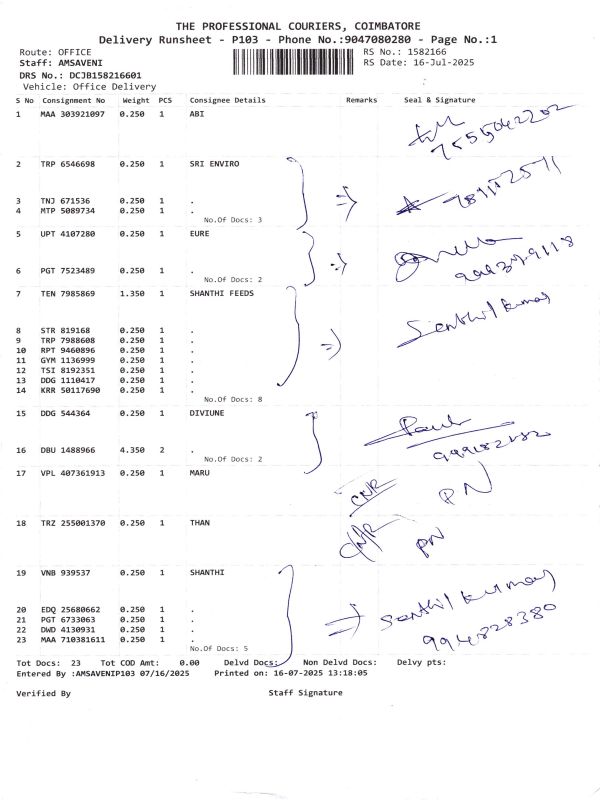 THE PROFESSIONAL COURIERS, COIMBATORE
Delivery Runsheet - P103 - Phone No.:9047080280 - Page No.:1
Route: OFFICE
RS No.: 1582166
Staff: AMSAVENI
RS Date: 16-Jul-2025
DRS No.: DCJB158216601
Vehicle: Office Delivery
S No Consignment No Weight PCS Consignee Details Remarks Seal & Signature
1 MAA 303921097 0.250 1 ABI
2 TRP 6546698 0.250 1 SRI ENVIRO
3 TNJ 671536 0.250 1 .
4 MTP 5089734 0.250 1 .
No.Of Docs: 3
5 UPT 4107280 0.250 1 EURE
6 PGT 7523489 0.250 1 .
No.Of Docs: 2
7 TEN 7985869 1.350 1 SHANTHI FEEDS
Senthil kumar
8 STR 819168 0.250 1 .
9 TRP 7988608 0.250 1 .
10 RPT 9460896 0.250 1 .
11 GYM 1136999 0.250 1 .
12 TSI 8192351 0.250 1 .
13 DDG 1110417 0.250 1 .
14 KRR 50117690 0.250 1 .
No.Of Docs: 8
15 DDG 544364 0.250 1 DIVIUNE
16 DBU 1488966 4.350 2 .
No.Of Docs: 2
17 VPL 407361913 0.250 1 MARU
PN
18 TRZ 255001370 0.250 1 THAN
PN
19 VNB 939537 0.250 1 SHANTHI
Senthil kumar
20 EDQ 25680662 0.250 1 .
21 PGT 6733063 0.250 1 .
9944828380
22 DWD 4130931 0.250 1 .
23 MAA 710381611 0.250 1 .
No.Of Docs: 5
Tot Docs: 23 Tot COD Amt: 0.00 Delvd Docs: Non Delvd Docs: Delvy pts:
Entered By :AMSAVENIP103 07/16/2025 Printed on: 16-07-2025 13:18:05
Verified By Staff Signature